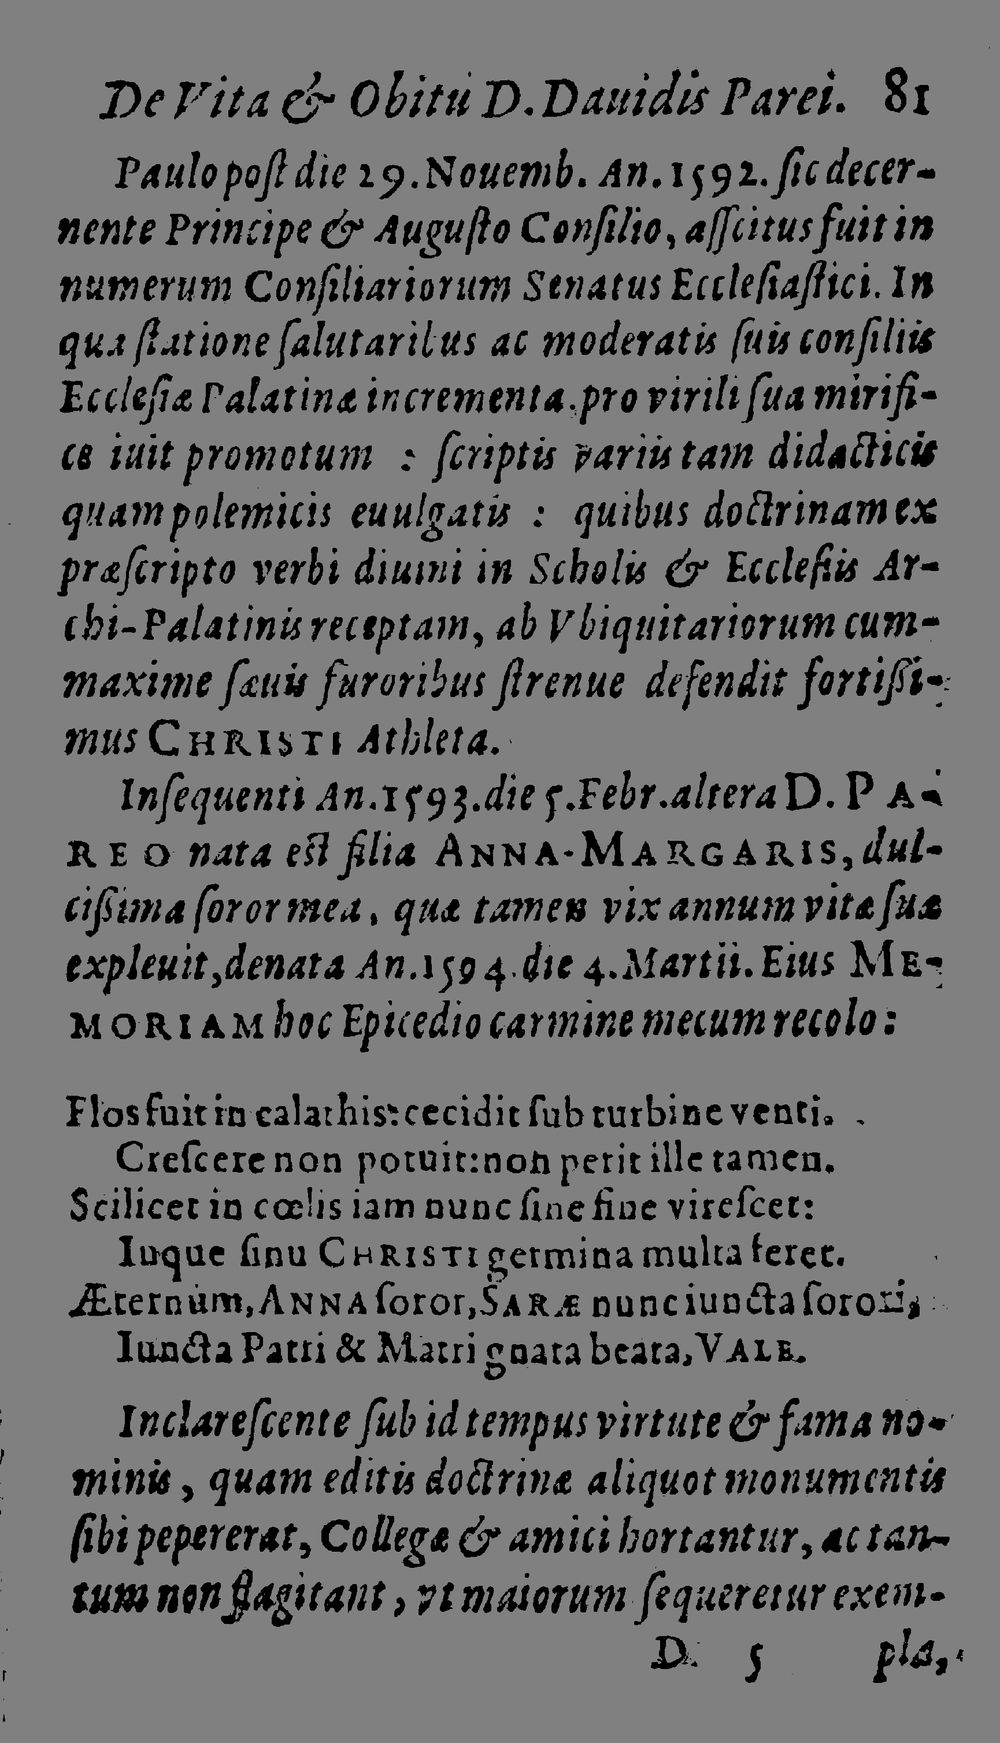 De Vita & Obitu D. Dauidis Parei. 81
Paulo poſt die 29. Nouemb. An. 1592. ſic decer-
nente Principe & Auguſto Conſilio, aſſcitus fuit in
numerum Conſiliariorum Senatus Eccleſiaſtici. In
qua ſtatione ſalutaribus ac moderatis ſuis conſiliis
Eccleſiæ Palatinæ incrementa pro virili ſua mirifi-
ce iuit promotum : ſcriptis variis tam didacticis
quam polemicis euulgatis : quibus doctrinam ex
præſcripto verbi diuini in Scholis & Eccleſiis Ar-
chi-Palatinis receptam, ab Vbiquitariorum cum-
maxime ſæuis furoribus ſtrenue defendit fortiſſi-
mus CHRISTI Athleta.
Inſequenti An. 1593. die 5. Febr. altera D. PA-
REO nata eſt filia ANNA-MARGARIS, dul-
ciſſima ſoror mea, quæ tamen vix annum vitæ ſuæ
expleuit, denata An. 1594. die 4. Martii. Eius ME-
MORIAM hoc Epicedio carmine mecum recolo:
Flos fuit in calathis: cecidit ſub turbine venti.
Creſcere non potuit: non perit ille tamen.
Scilicet in cœlis iam nunc ſine fine vireſcet:
Inque ſinu CHRISTI germina multa feret.
Æternùm, ANNA ſoror, SARÆ nunc iuncta ſorori,
Iuncta Patri & Matri gnata beata, VALE.
Inclareſcente ſub id tempus virtute & fama no-
minis, quam editis doctrinæ aliquot monumentis
ſibi pepererat, Collegæ & amici hortantur, ac tan-
tum non flagitant, vt maiorum ſequeretur exem-
D 5 pla,